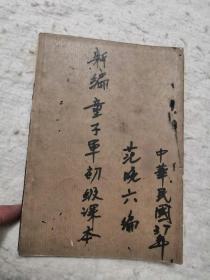 中華民國37年
范晚六編
新編童子軍初級课本